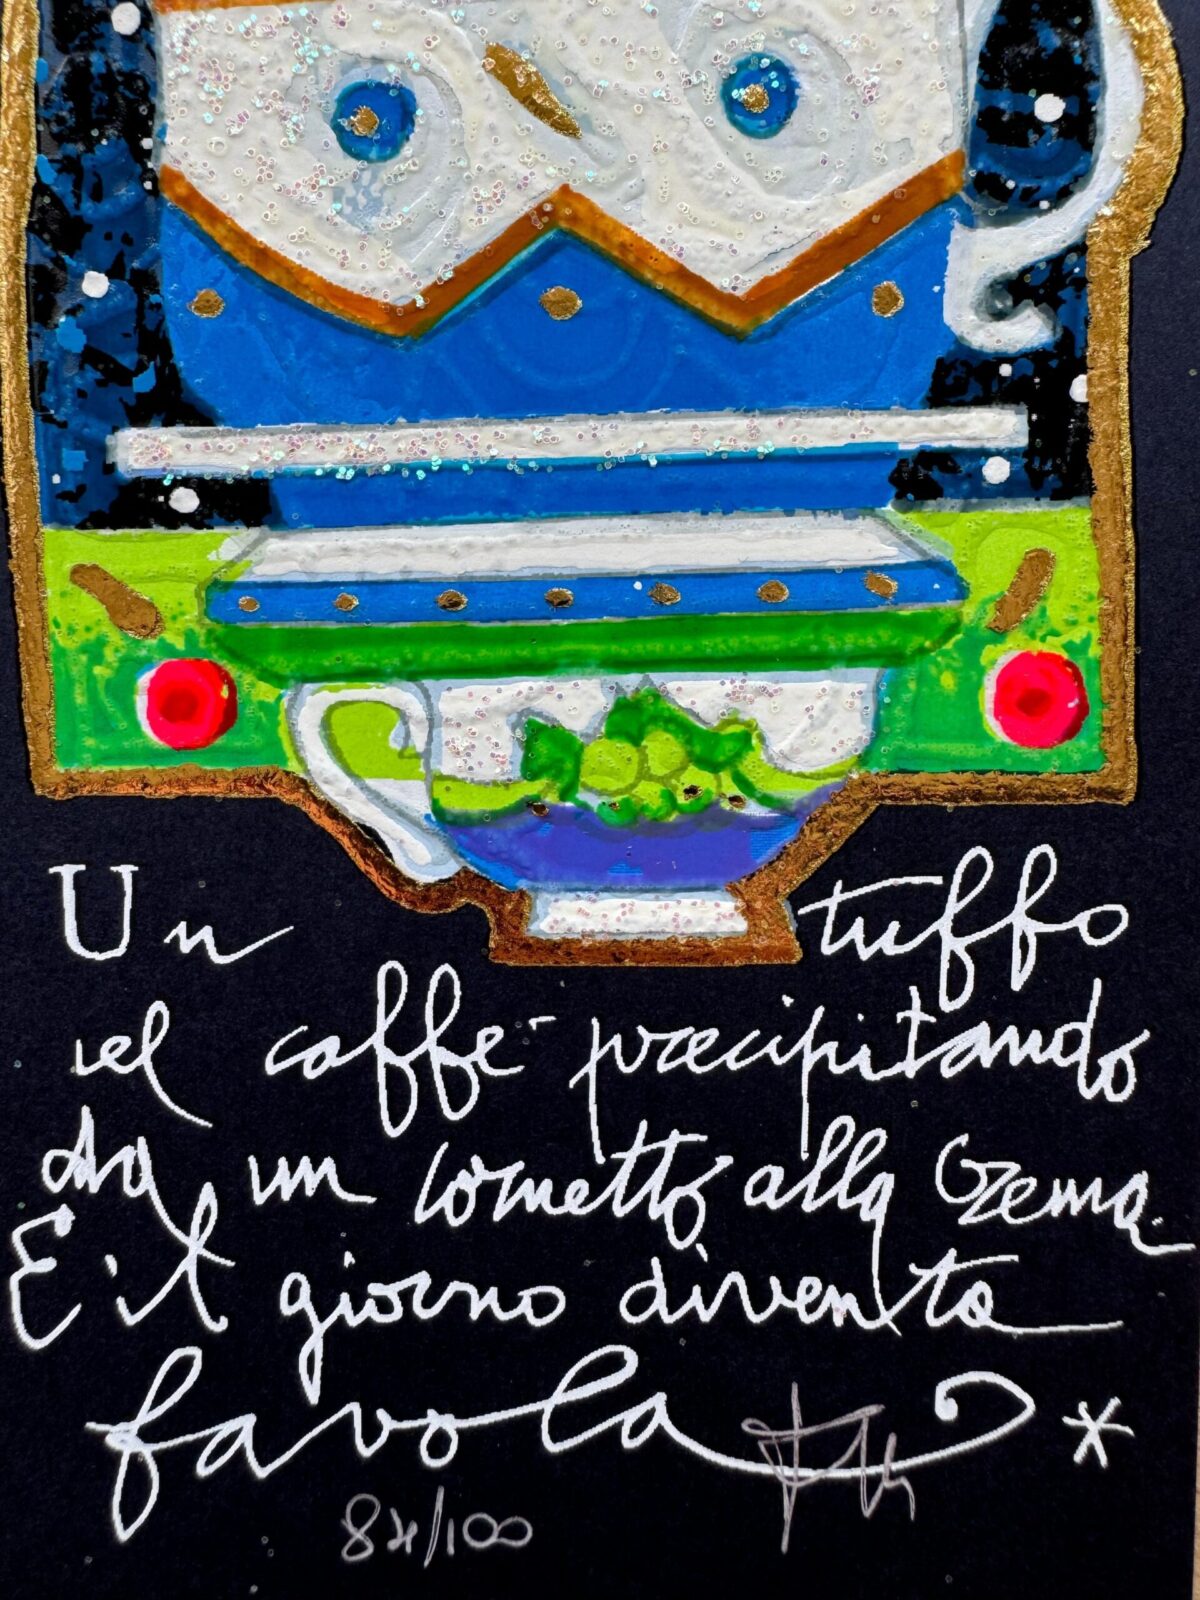 Un tuffo
nel caffè precipitando
da un cornetto alla crema.
E il giorno diventa
favola *
84/100